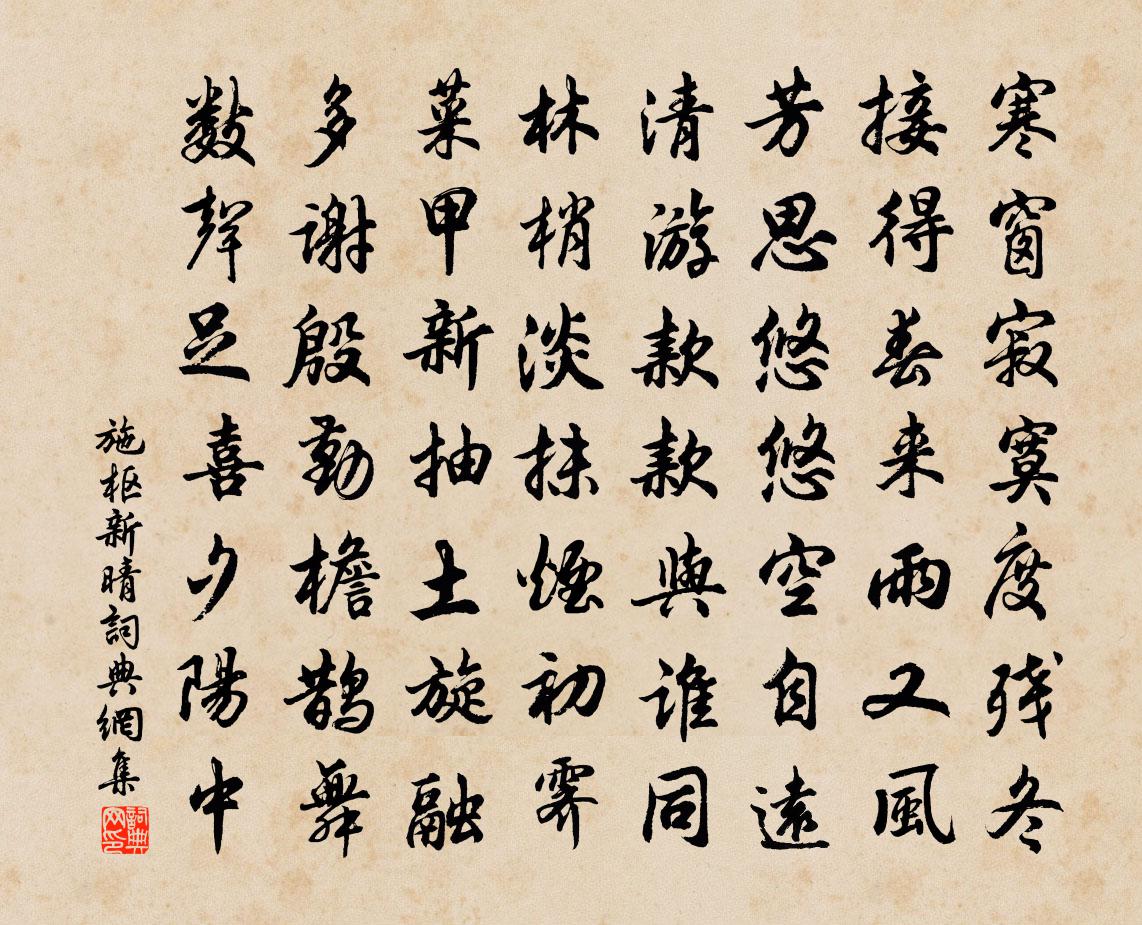 寒窗寂寞度残冬
接得春来雨又風
芳思悠悠空自遠
清游款款與誰同
林梢淡抹煙初霽
菜甲新抽土旋融
多謝殷勤檐鵲舞
数聲足喜夕陽中
施枢新晴詞典網集
詞典網印